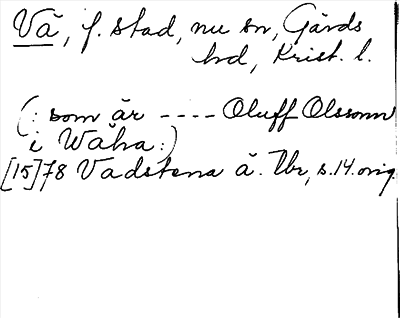 Vä, f. stad, nu sn, Gärds
hd, Krist. l.
(: som är ---- Oluff Olssonn
i Wäha :)
[15]78 Vadstena ä. Tbr, s. 14. orig.